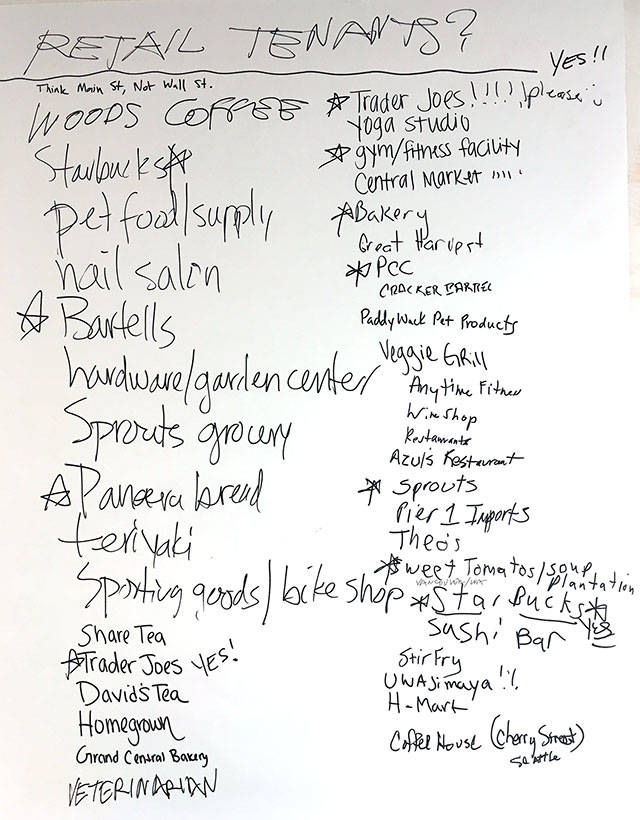 RETAIL TENANTS?
YES!!
Think Main St, Not Wall St.
WOODS COFFEE
Starbucks
pet food/supply
nail salon
Bartells
hardware/garden center
Sprouts grocery
Panera bread
teriyaki
Sporting goods/bike shop
Share Tea
Trader Joes YES!
David's Tea
Homegrown
Grand Central Bakery
VETERINARIAN
Trader Joes!!!!, please
yoga studio
gym/fitness facility
Central Market
Bakery
Great Harvest
PCC
CRACKER BARREL
Paddywack Pet Products
Veggie GRill
Anytime Fitness
Wine Shop
Restaurants
Azul's Restaurant
Sprouts
Pier 1 Imports
Theo's
Sweet Tomatos/soup
plantation
Star Bucks
Yes
Sushi Bar
Stir Fry
UWAJimaya!!
H-Mart
Coffee House (Cherry Street)
Seattle